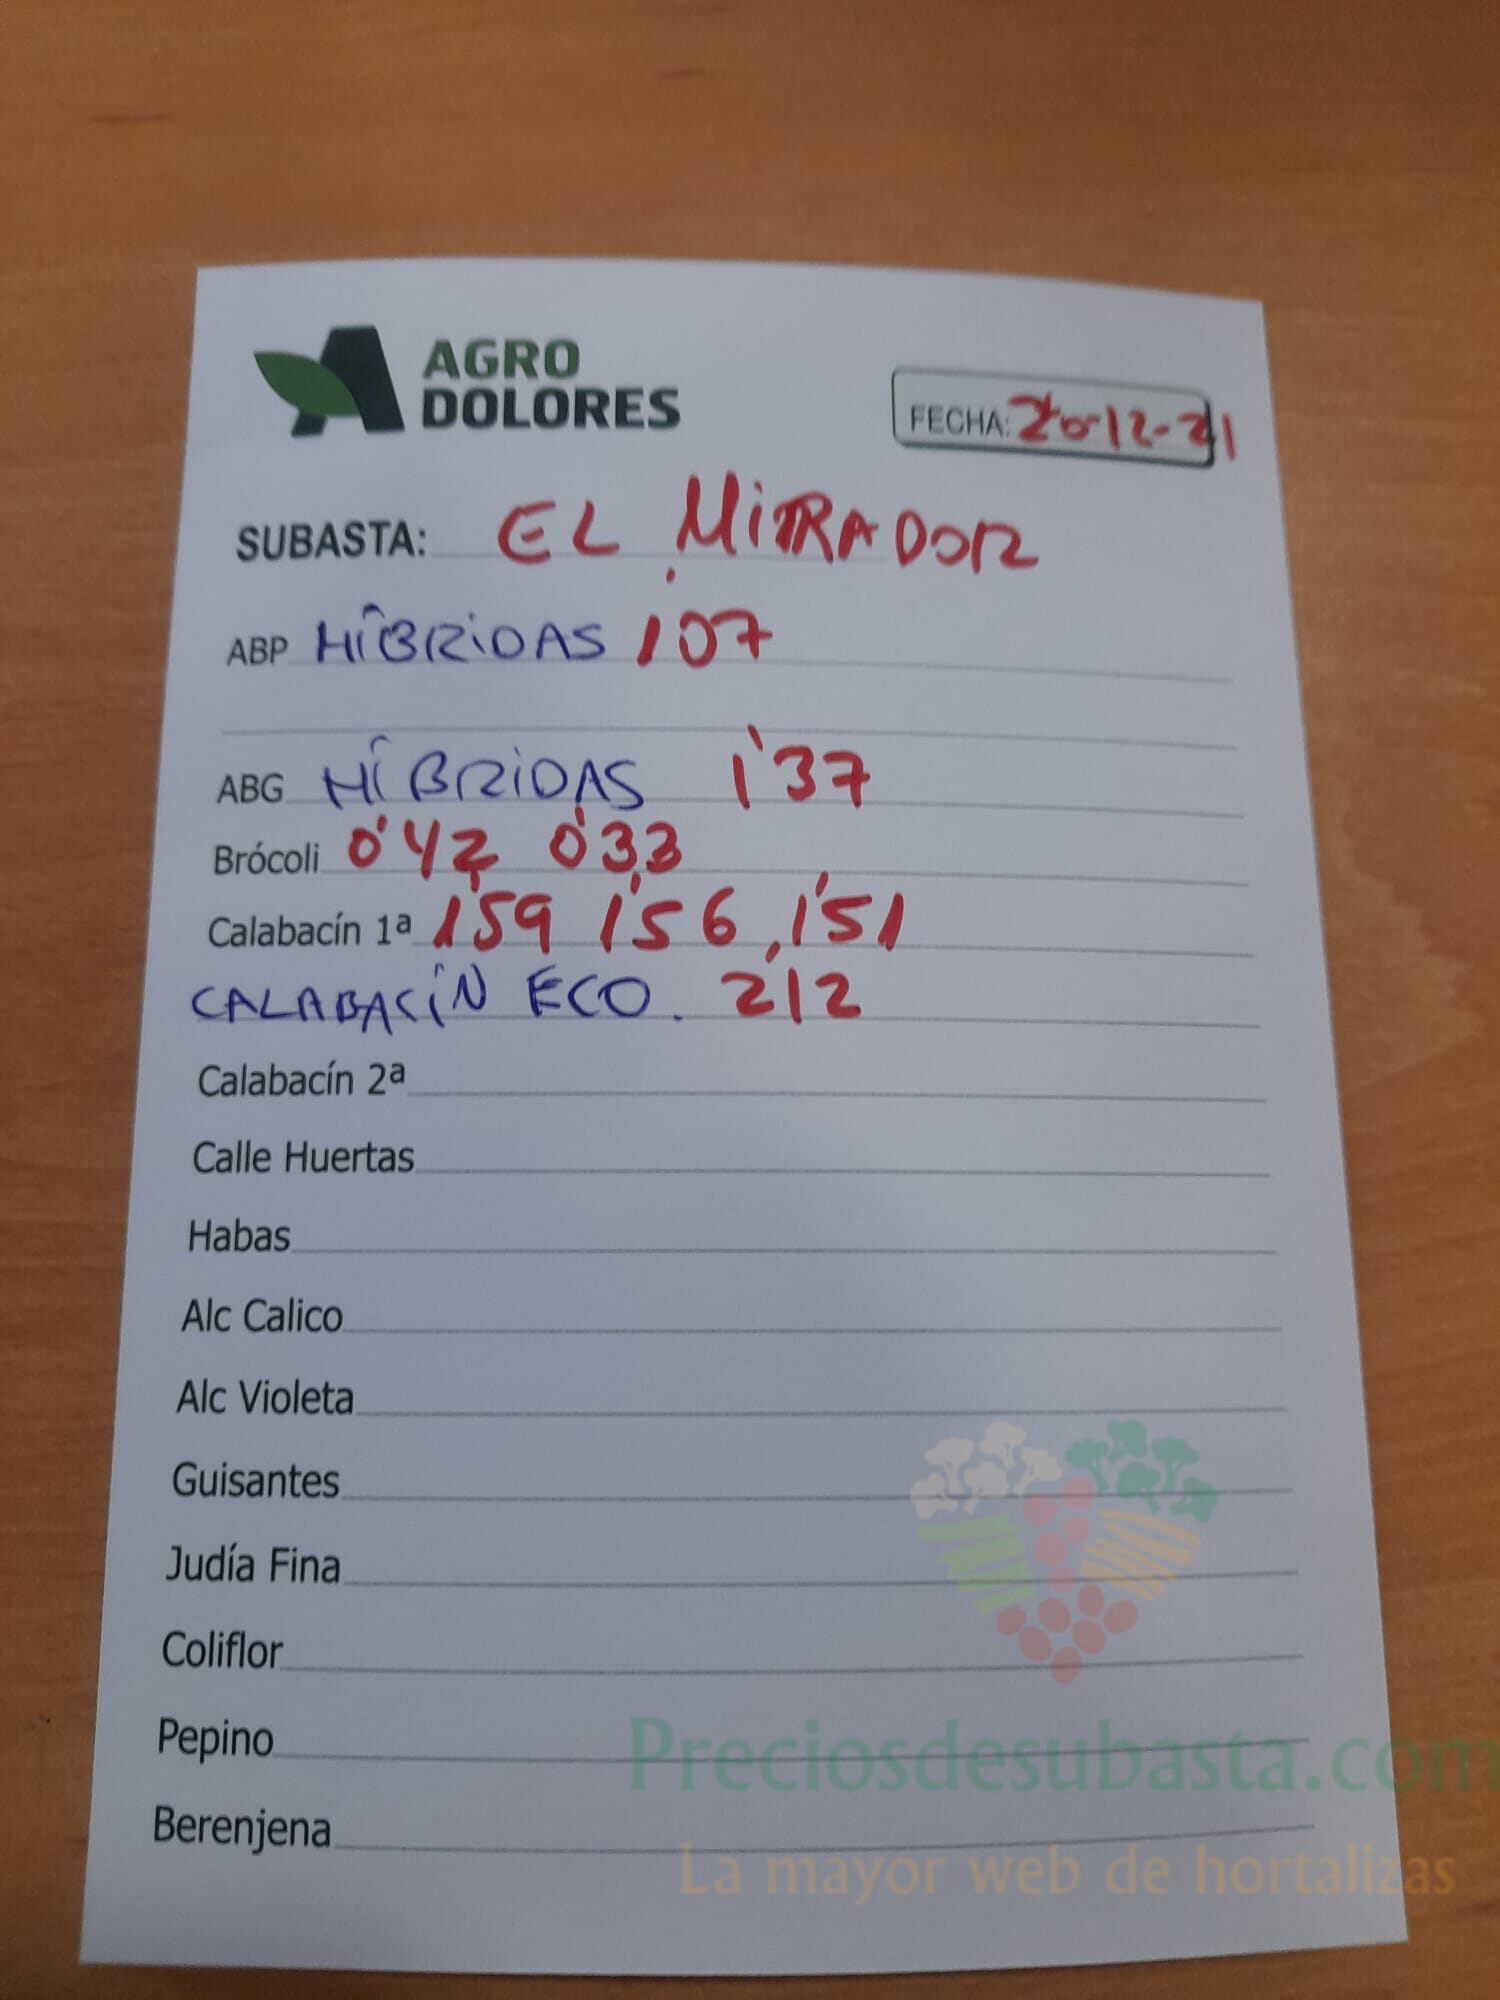 AGRO
DOLORES
FECHA: 20-12-21
SUBASTA: EL MIRADOR
ABP HÍBRIDAS 1'07
ABG HÍBRIDAS 1'37
Brócoli 0'42 0'33
Calabacín 1ª 1'59 1'56 1'51
CALABACÍN ECO. 2'12
Calabacín 2ª
Calle Huertas
Habas
Alc Calico
Alc Violeta
Guisantes
Judía Fina
Coliflor
Pepino
Berenjena
Preciosdesubasta.com
La mayor web de hortalizas